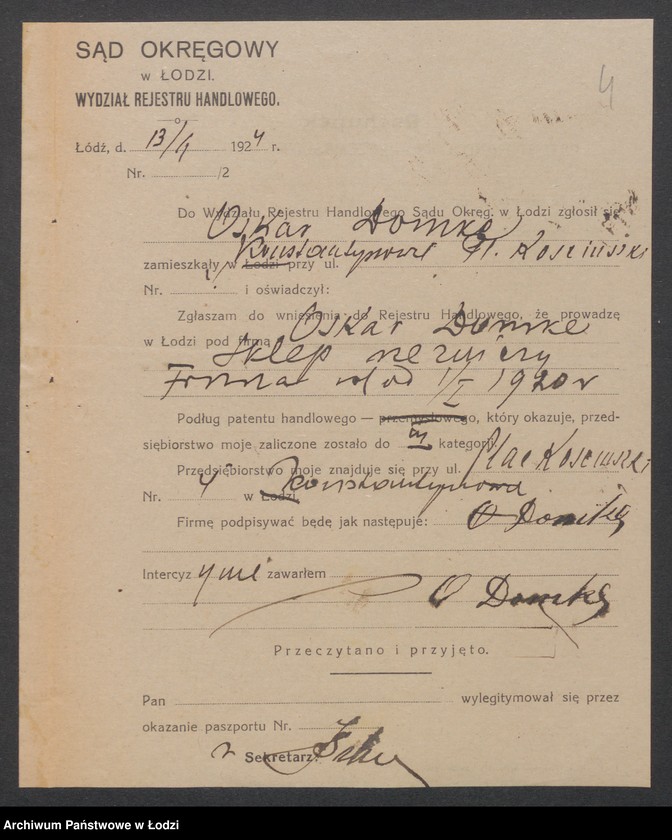 4
SĄD OKRĘGOWY
w ŁODZI.
WYDZIAŁ REJESTRU HANDLOWEGO.
Łódź, d. 13/4 1924 r.
Nr. /2
Do Wydziału Rejestru Handlowego Sądu Okręg. w Łodzi zgłosił się
Oskar Domke
zamieszkały w Łodzi przy ul. Pl. Kosciuszki
Nr. i oświadczył:
Zgłaszam do wniesienia do Rejestru Handlowego, że prowadzę
w Łodzi pod firmą Oskar Domke
Sklep
Firma od 1/I 1920 r
Podług patentu handlowego — przemysłowego, który okazuje, przed-
siębiorstwo moje zaliczone zostało do III kategorji.
Przedsiębiorstwo moje znajduje się przy ul. Plac Kosciuszki
Nr. 4 w Łodzi
Firmę podpisywać będę jak następuje: O Domke
Intercyz zawarłem
O Domke
Przeczytano i przyjęto.
Pan wylegitymował się przez
okazanie paszportu Nr.
Sekretarz:
Archiwum Państwowe w Łodzi